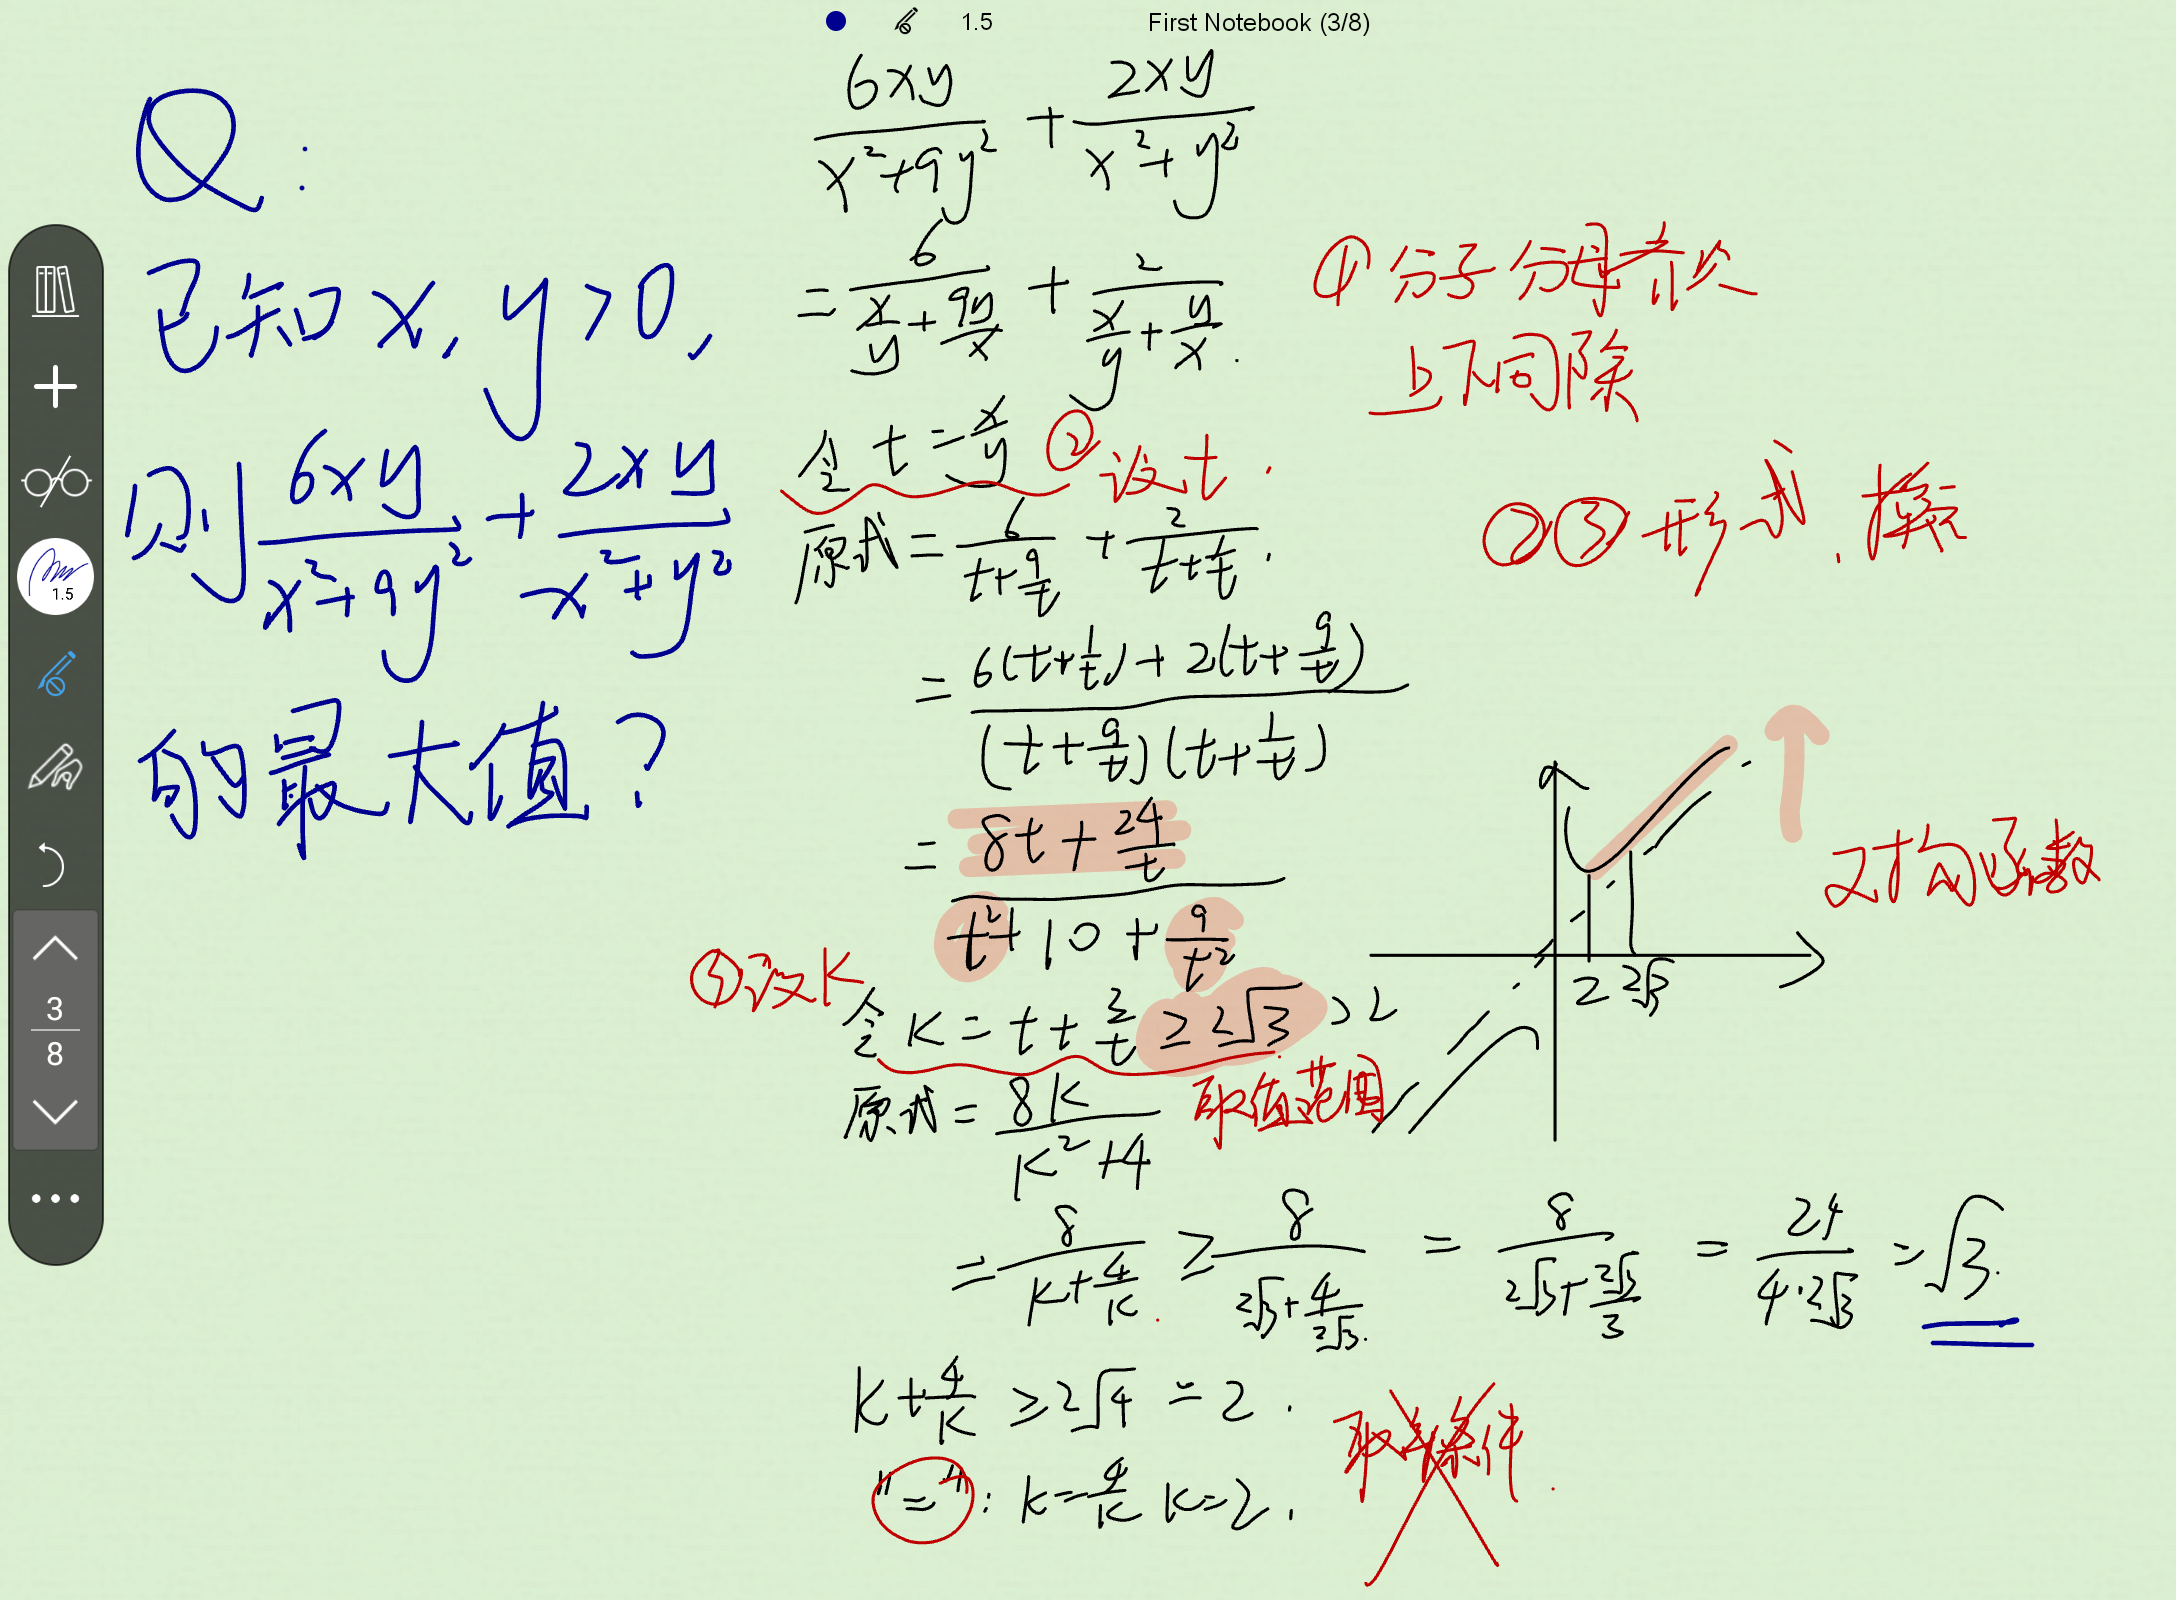 1.5 First Notebook (3/8)
Q:
已知 x, y>0,
则 6xy/(x²+9y²) + 2xy/(x²+y²)
的最大值?
1.5
3
8
6xy/(x²+9y²) + 2xy/(x²+y²)
= 6/(x/y + 9y/x) + 2/(x/y + y/x).
① 分子分母齐次
上下同除
令 t = x/y ② 设t.
原式 = 6/(t+9/t) + 2/(t+1/t).
②③ 形式, 换元
= (6(t+1/t) + 2(t+9/t))/((t+9/t)(t+1/t))
= (8t + 24/t)/(t² + 10 + 9/t²)
③ 设K
令 K = t + 3/t ≥ 2√3 > 2
取值范围
原式 = 8K/(K²+4)
= 8/(K+4/K) ≥ 8/(2√3 + 4/(2√3)) = 8/(2√3 + 2√3/3) = 24/(4·2√3) = √3.
K + 4/K ≥ 2√4 = 2.
"=": K = 4/K K = 2.
取等条件.
2 2√3
对勾函数